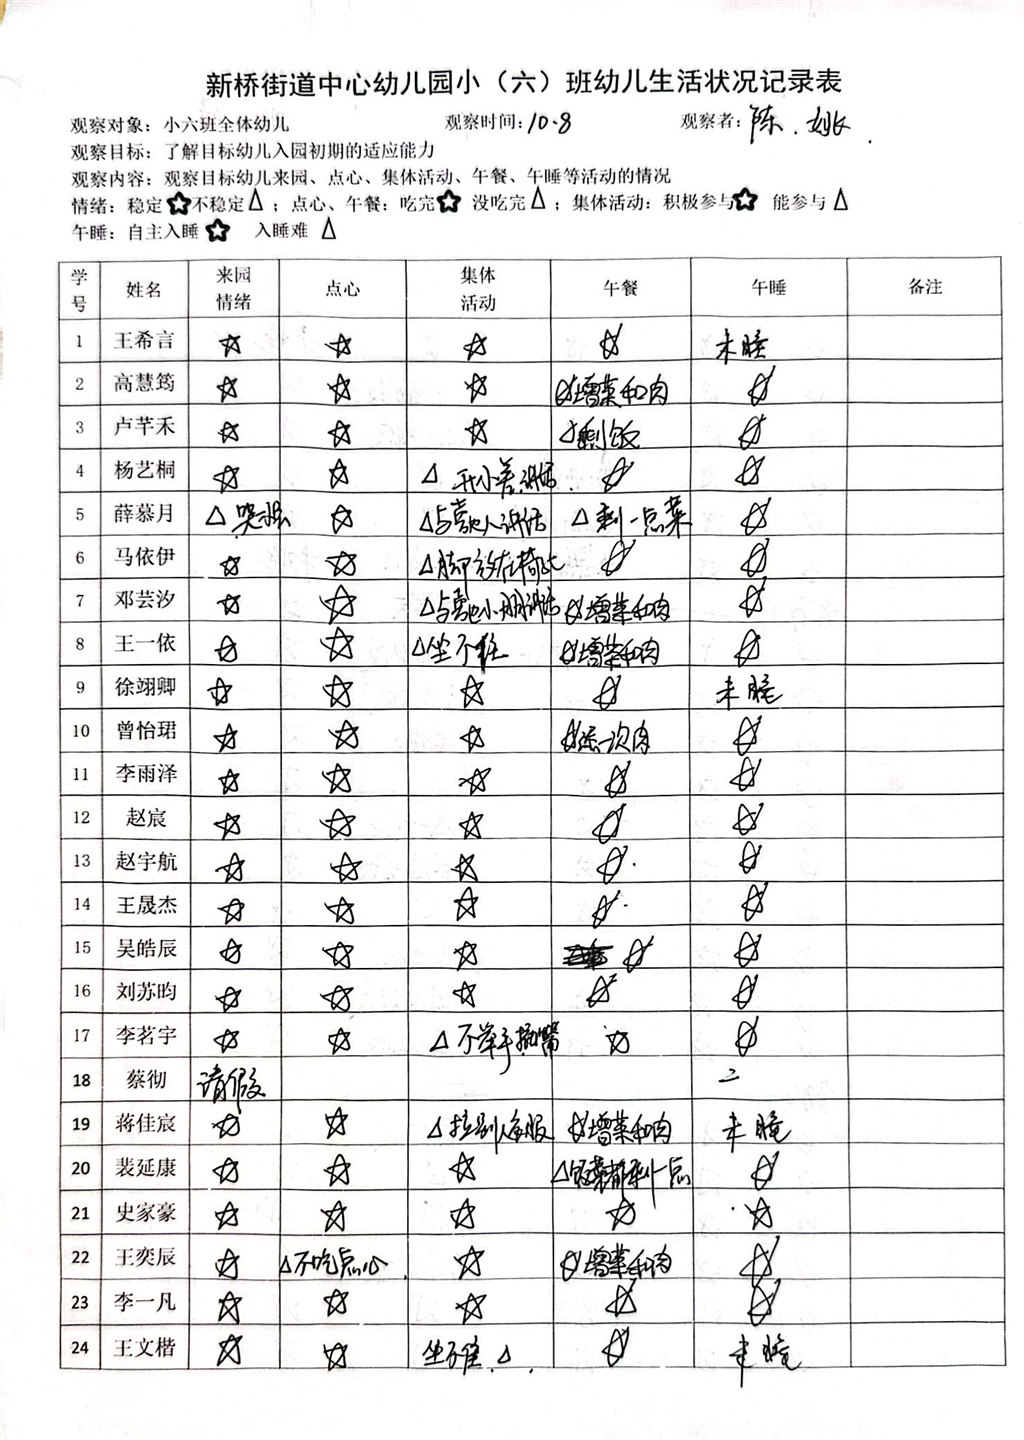 新桥街道中心幼儿园小（六）班幼儿生活状况记录表
观察对象：小六班全体幼儿 观察时间：10.8 观察者：陈、姚
观察目标：了解目标幼儿入园初期的适应能力
观察内容：观察目标幼儿来园、点心、集体活动、午餐、午睡等活动的情况
情绪：稳定☆不稳定△；点心、午餐：吃完☆ 没吃完△；集体活动：积极参与☆ 能参与△
午睡：自主入睡☆ 入睡难 △
学号 姓名 来园情绪 点心 集体活动 午餐 午睡 备注
1 王希言 ☆ ☆ ☆ ☆ 未睡
2 高慧筠 ☆ ☆ ☆ ☆增菜和肉 ☆
3 卢芊禾 ☆ ☆ ☆ △剩饭 ☆
4 杨艺桐 ☆ ☆ △ 开小差,讲话 ☆ ☆
5 薛慕月 △ ☆ △与其他人讲话 △ 剩一点菜 ☆
6 马依伊 ☆ ☆ △脚放在椅子上 ☆ ☆
7 邓芸汐 ☆ ☆ △与其他小朋讲话 ☆增菜和肉 ☆
8 王一依 ☆ ☆ △坐不住 ☆增菜和肉 ☆
9 徐翊卿 ☆ ☆ ☆ ☆ 未睡
10 曾怡珺 ☆ ☆ ☆ ☆添一次肉 ☆
11 李雨泽 ☆ ☆ ☆ ☆ ☆
12 赵宸 ☆ ☆ ☆ ☆ ☆
13 赵宇航 ☆ ☆ ☆ ☆ ☆
14 王晟杰 ☆ ☆ ☆ ☆ ☆
15 吴皓辰 ☆ ☆ ☆ ☆ ☆
16 刘苏昀 ☆ ☆ ☆ ☆ ☆
17 李茗宇 ☆ ☆ △ 不举手插嘴 ☆ ☆
18 蔡彻 请假
19 蒋佳宸 ☆ ☆ △拉别人衣服 ☆增菜和肉 未睡
20 裴延康 ☆ ☆ ☆ △饭菜都剩一点 ☆
21 史家豪 ☆ ☆ ☆ ☆ ☆
22 王奕辰 ☆ △不吃点心 ☆ ☆增菜和肉 ☆
23 李一凡 ☆ ☆ ☆ ☆ ☆
24 王文楷 ☆ ☆ 坐不住 △ ☆ 未睡